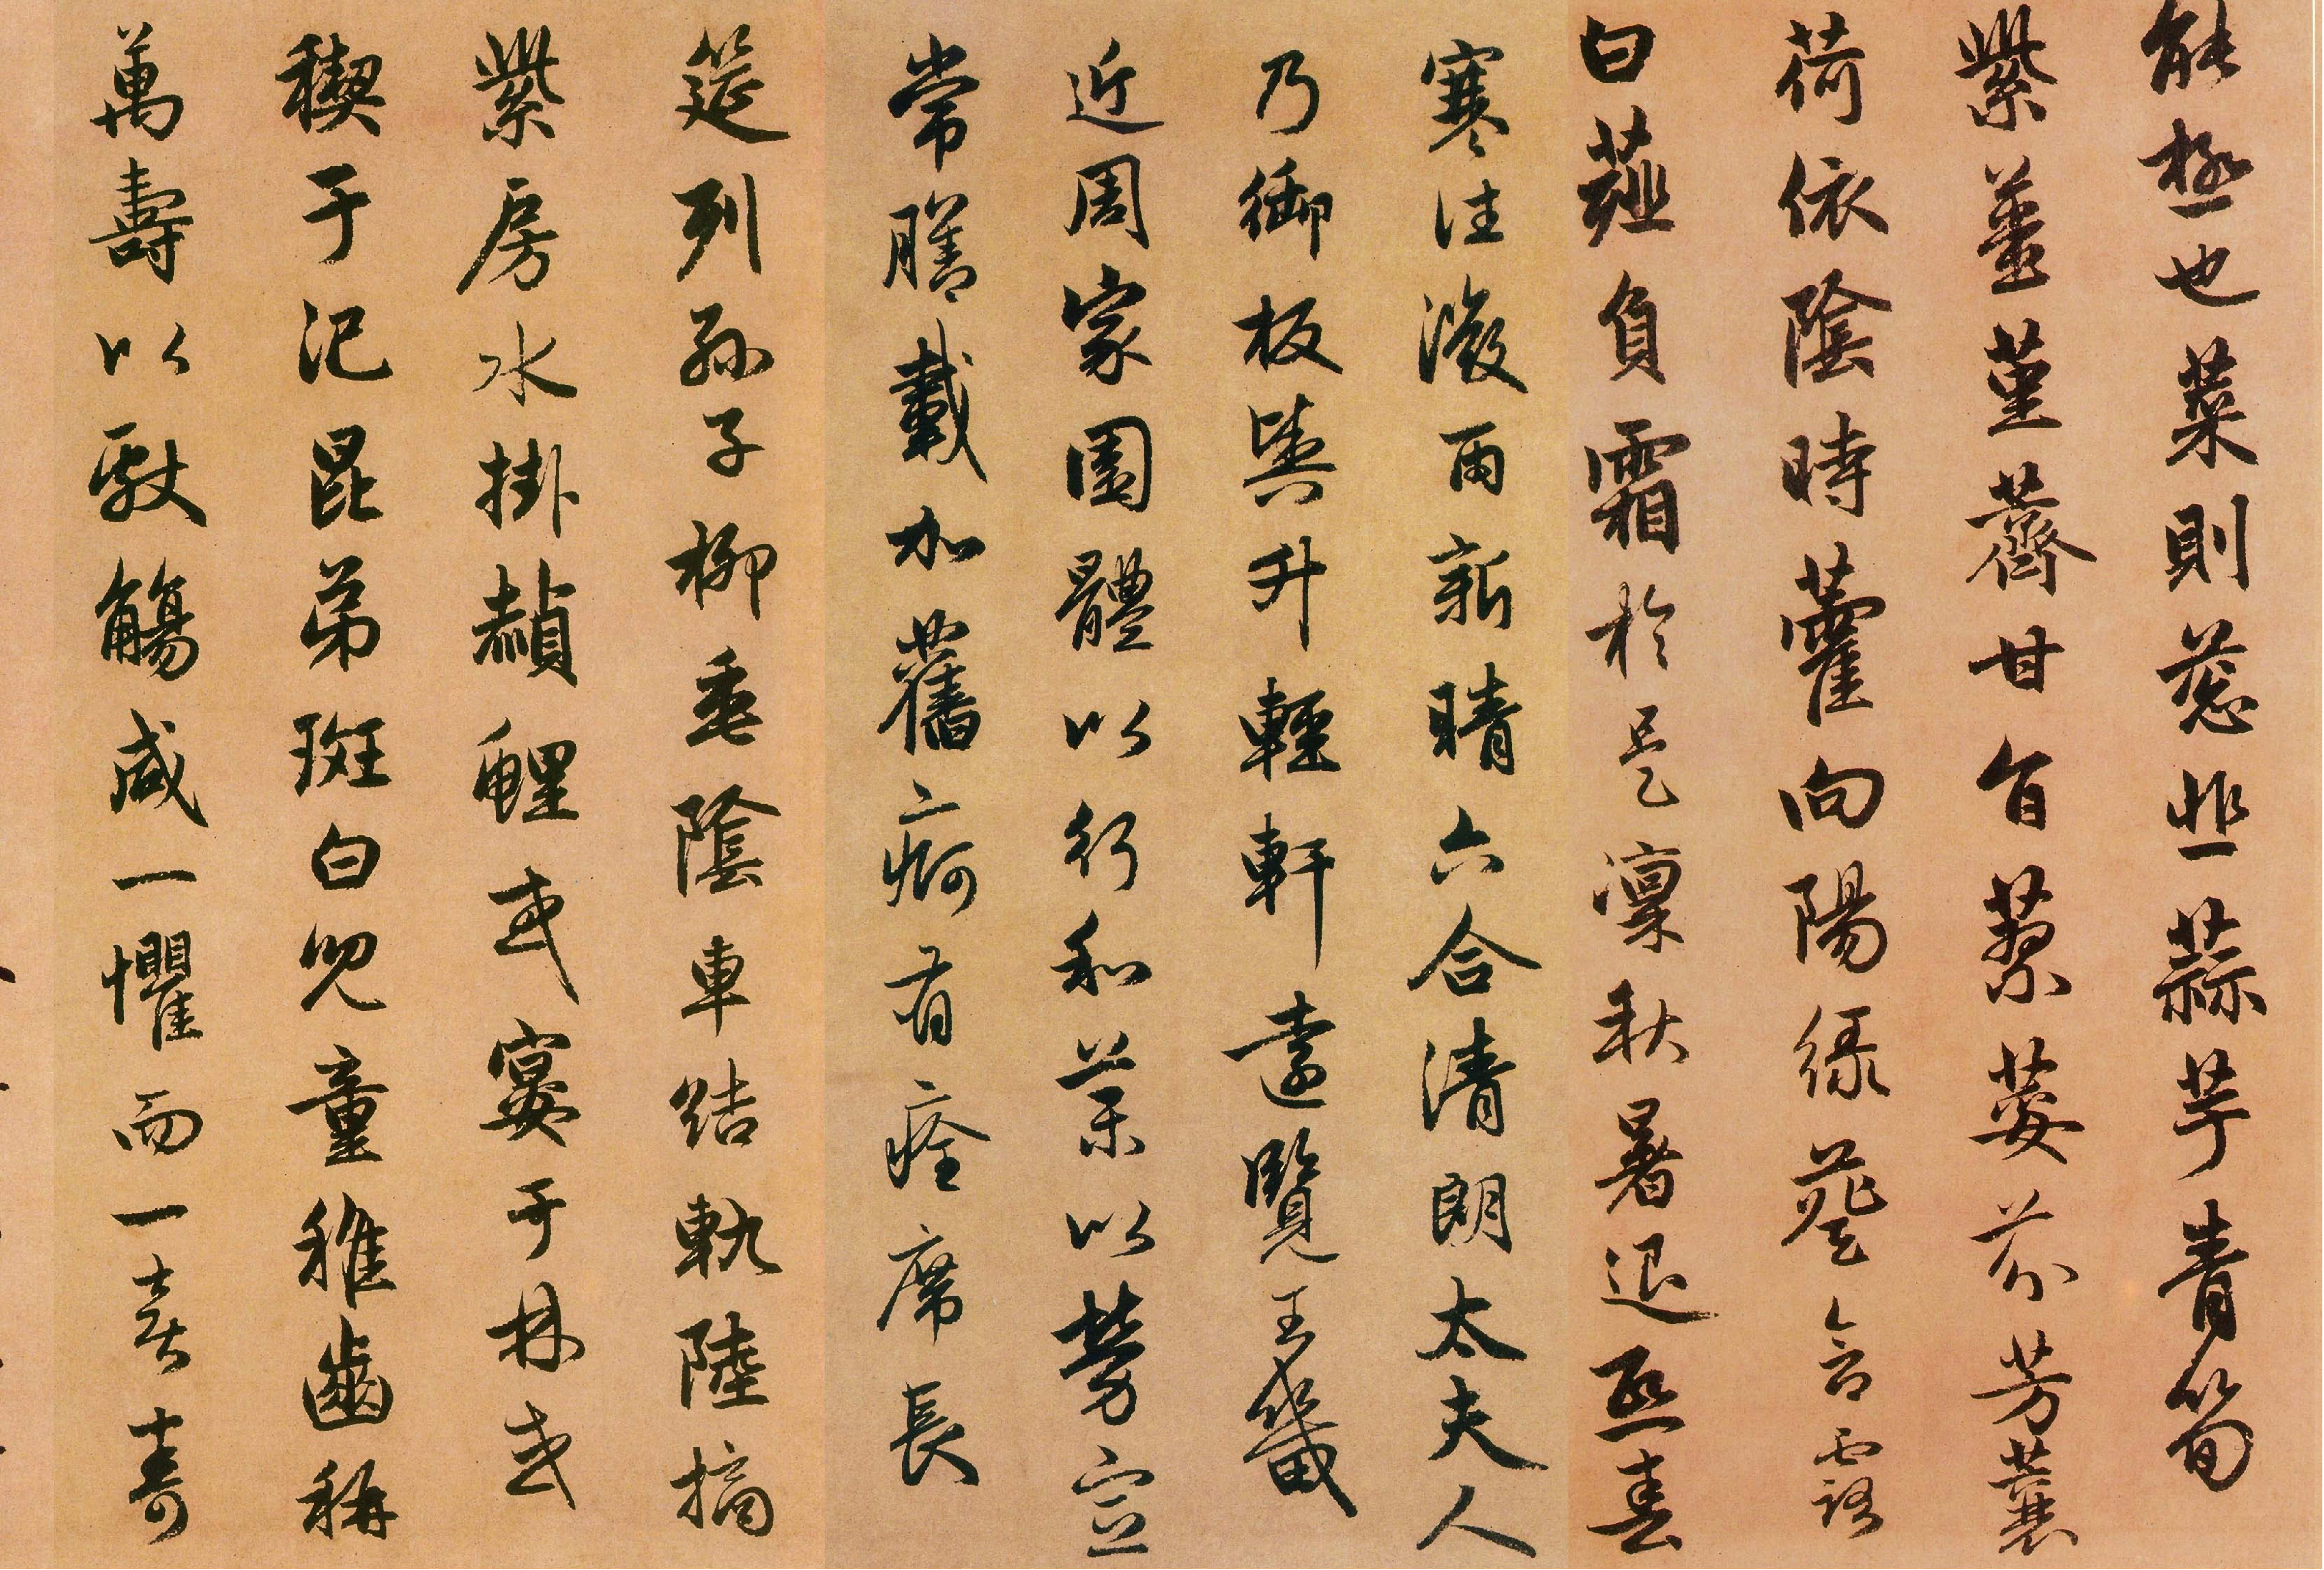 能極也菜則葱韭蒜芋青筍
紫薑堇薺甘旨蓼荽芬芳蘘
荷依陰時藿向陽緑葵含露
白薤負霜於是凜秋暑退熙春
寒往微雨新晴六合清朗太夫人
乃御板輿升輕軒遠覽王畿
近周家園體以行和藥以勞宣
常膳載加舊痾有痊席長
筵列孫子柳垂陰車結軌陸摘
紫房水掛赬鯉或宴于林或
禊于汜昆弟斑白兒童稚齒稱
萬壽以獻觴咸一懼而一喜壽